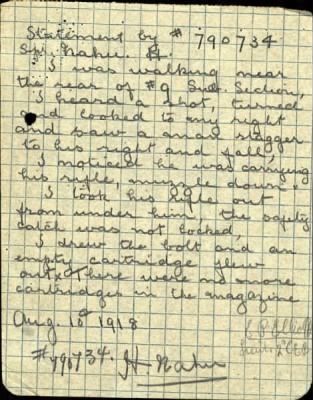 Statement by # 790734
Spr. Nahu. H.
I was walking near
the rear of #9 Sub. Section,
I heard a shot, turned
and looked to my right
and saw a man stagger
to his right and fall,
I noticed he was carrying
his rifle, muzzle down.
I took his rifle out
from under him, the safety
catch was not locked,
I drew the bolt and an
empty cartridge flew
out. There were no more
cartridges in the magazine
Aug. 10th 1918
#790734. H. Nahu